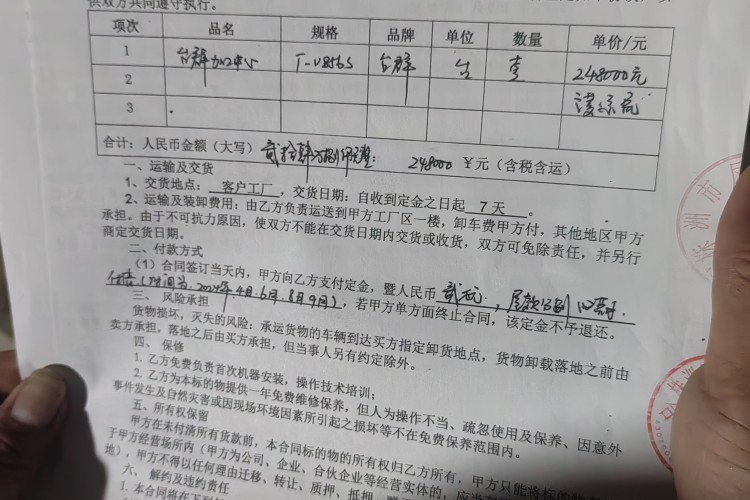 供双方共同遵守执行。
项次 品名 规格 品牌 单位 数量 单价/元
1 台群加工中心 T-V856S 台群 台 壹 248000元
2
3
合计:人民币金额(大写) 贰拾肆万捌仟元整: 248000 ¥元(含税含运)
一、运输及交货
1、交货地点: 客户工厂 ,交货日期:自收到定金之日起 7天 。
2、运输及装卸费用:由乙方负责运送到甲方工厂区一楼,卸车费甲方付,其他地区甲方
承担。由于不可抗力原因,使双方不能在交货日期内交货或收货,双方可免除责任,并另行
商定交货日期。
二、付款方式
(1)合同签订当天内,甲方向乙方支付定金,暨人民币 贰万 ,尾款分别
付清(时间为:2024年4月6月8月9月),若甲方单方面终止合同,该定金不予退还。
三、风险承担
货物损坏,灭失的风险,承运货物的车辆到达买方指定卸货地点,货物卸载落地之前由
卖方承担,落地之后由买方承担,但当事人另有约定除外。
四、保修
1. 乙方免费负责首次机器安装,操作技术培训;
2. 乙方为本标的物提供一年免费维修保养,但人为操作不当、疏忽使用及保养、因意外
事件发生及自然灾害或因现场环境因素所引起之损坏等不在免费保养范围内。
五、所有权保留
甲方在未付清所有货款前,本合同标的物的所有权归乙方所有,甲方只能将标的物
于甲方经营场所内(甲方为公司、企业、合伙企业等经营实体的,应当
地),甲方不得以任何理由迁移、转让、质押、抵押
六、解约及违约责任
1. 本合同将在下列